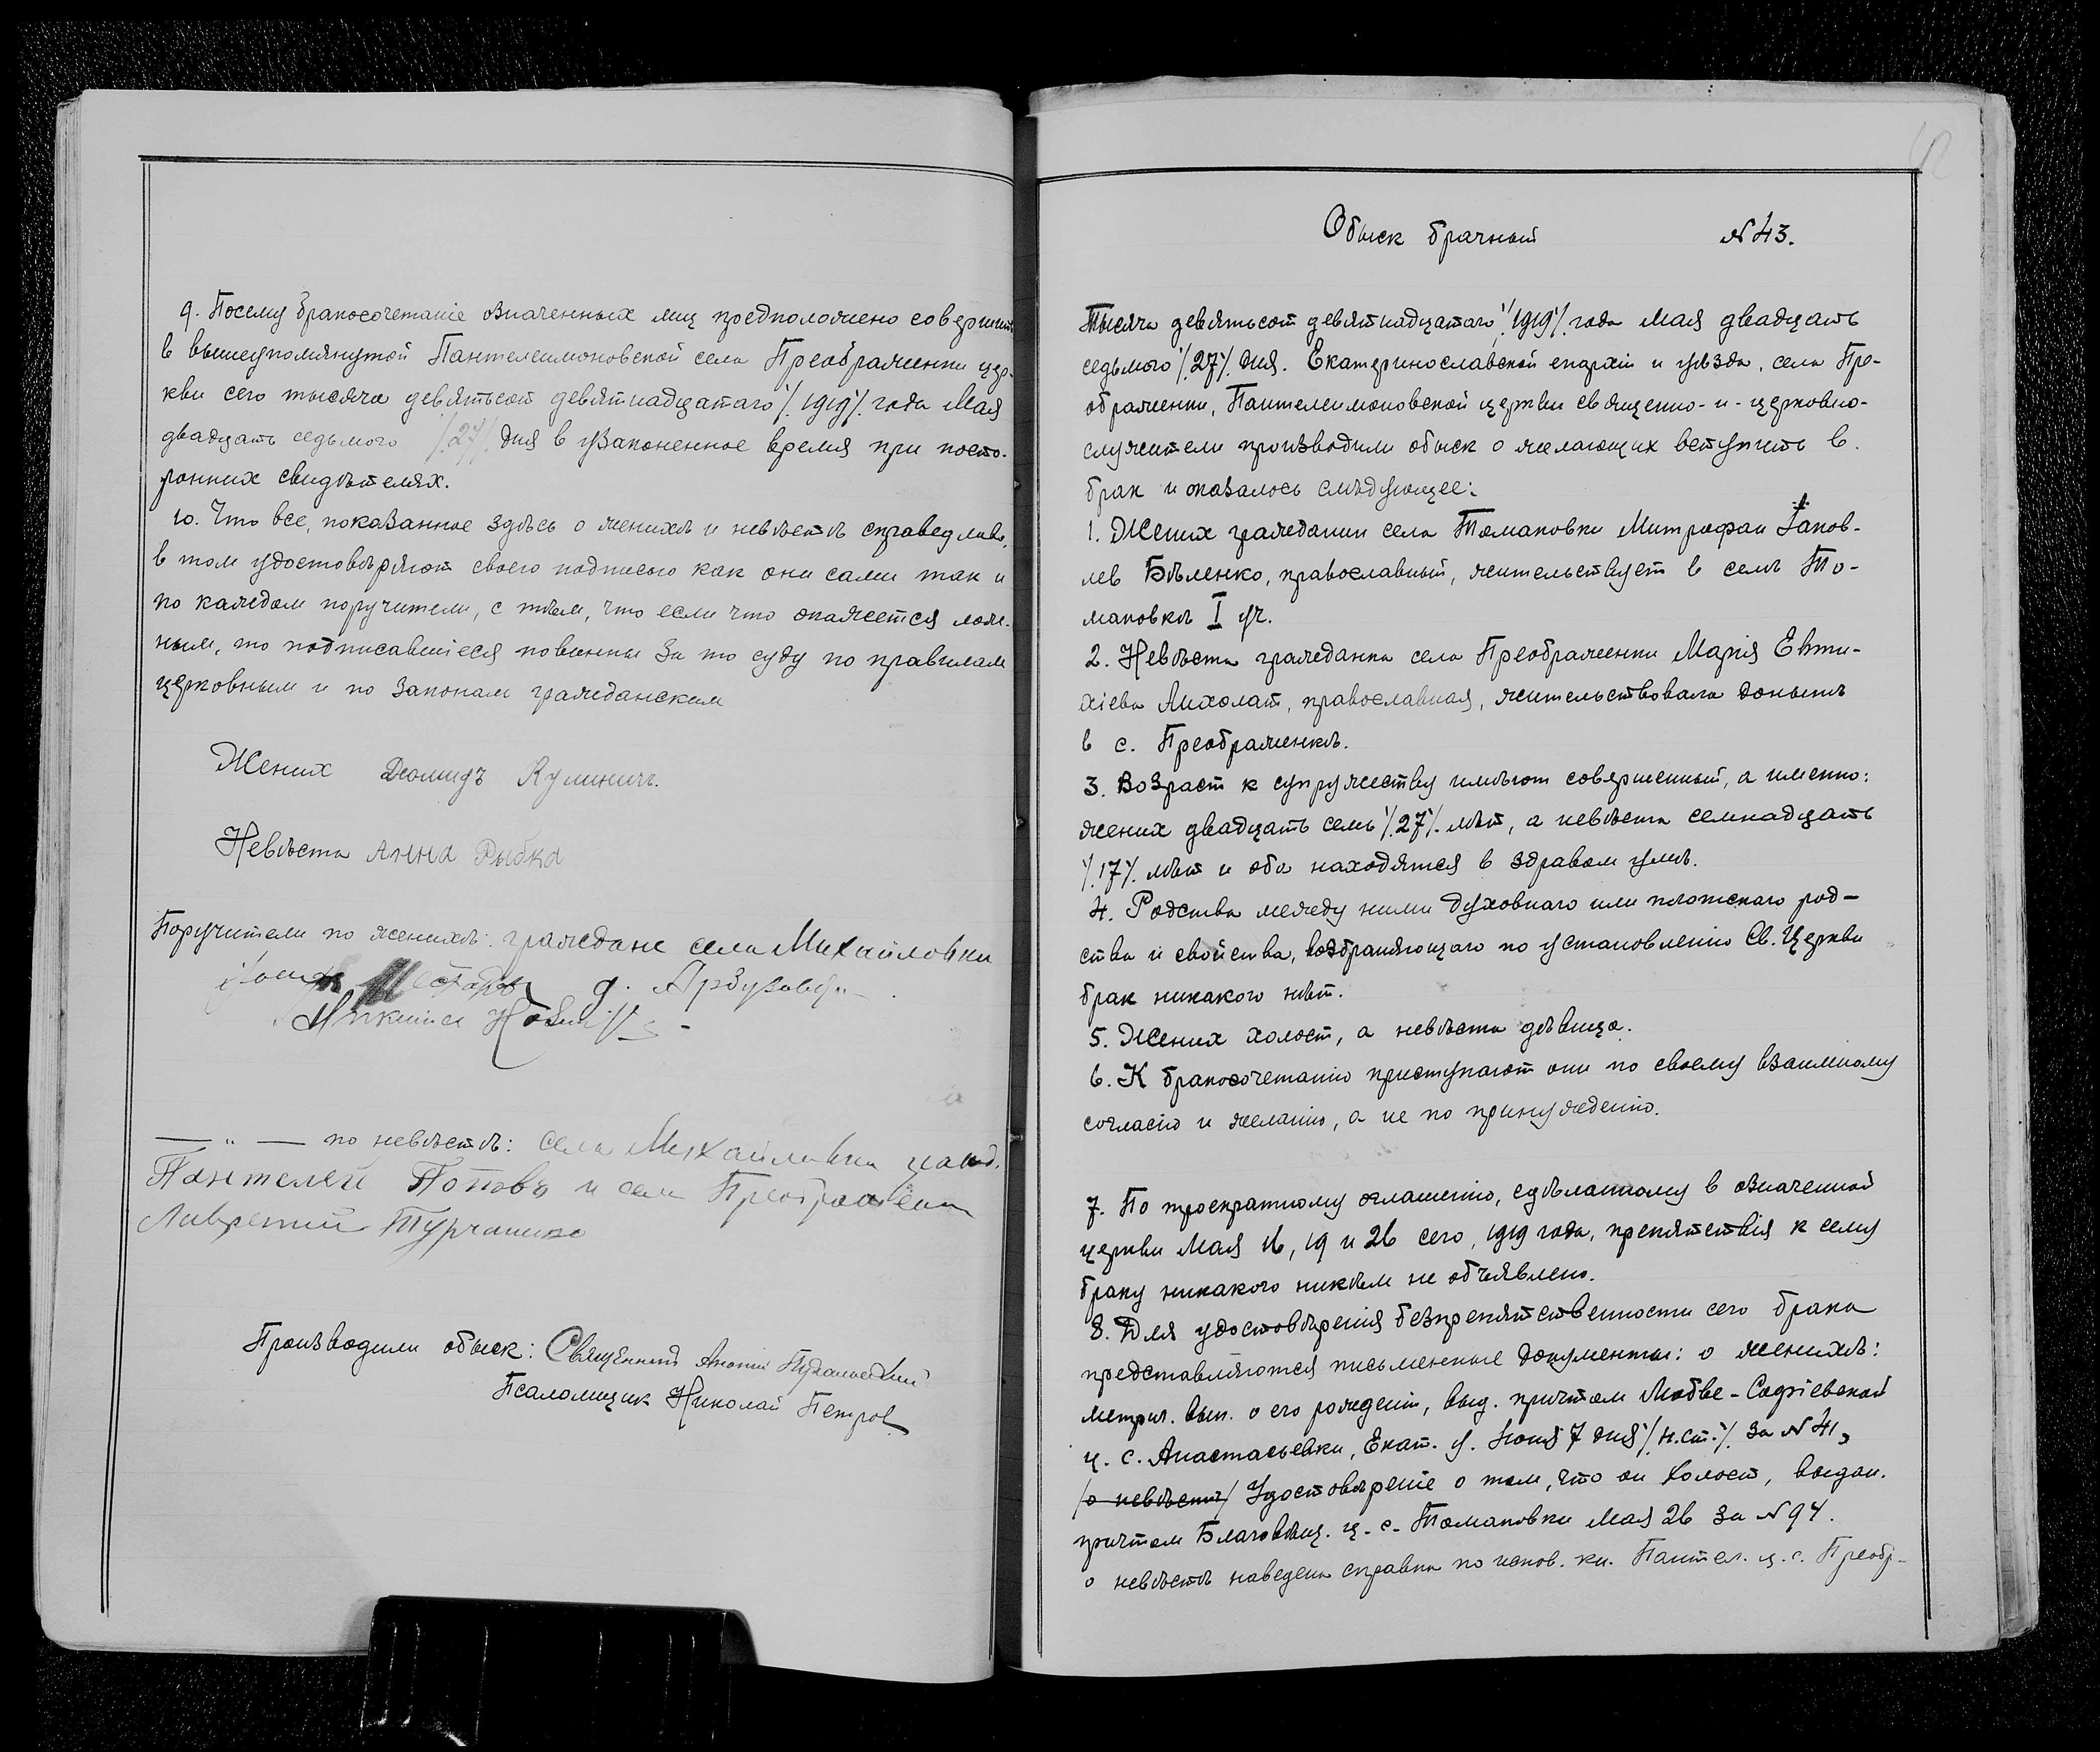 9. Посему бракосочетаніе означенных лиц предположено совершить
в вышеупомянутой Пантелеимоновской села Преображенки цер-
кви сего тысяча девятьсот девятнадцатаго /.1919/. года Мая
двадцать седьмого /.27/. дня в узаконенное время при посто-
ронних свидѣтелях.
10. Что все, показанное здѣсь о женихѣ и невѣстѣ справедливо,
в том удостовѣряют своею подписью как они сами так и
по каждом поручители, с тѣм, что если что окажется лож-
ным, то подписавшіеся повинны за то суду по правилам
церковным и по законам гражданским
Жених Діомидъ Кулинич.
Невѣста Анна Рыбка
Поручители по женихѣ: граждане села Михайловки
д.
Никита
— " — по невѣстѣ: села Михайловки
Пантелей Поповъ и села
Лаврентий
Производили обыск: Священник
Псаломщик Николай Петров
Обыск брачный №43.
Тысяча девятьсот девятнадцатаго /.1919/. года Мая двадцать
седьмого /.27/. дня. Екатеринославской епархіи и уѣзда, села Пре-
ображенки, Пантелеимоновской церкви священно-и-церковно-
служители производили обыск о желающих вступить в
брак и оказалось слѣдующее:
1. Жених гражданин села Томаковки Митрофан Іаков-
лев Бѣленко, православный, жительствует в селѣ То-
маковкѣ I уч.
2. Невѣста гражданка села Преображенки Марія Евти-
хіева Лихолат, православная, жительствовала донынѣ
в с. Преображенкѣ.
3. Возраст к супружеству имѣют совершенный, а именно:
жених двадцать семь /.27/. лѣт, а невѣста семнадцать
/.17/. лѣт и оба находятся в здравом умѣ.
4. Родства между ними духовнаго или плотскаго род-
ства и свойства, возбраняющаго по установленію Св. Церкви
брак никакого нѣт.
5. Жених холост, а невѣста дѣвица.
6. К бракосочетанію приступают они по своему взаимному
согласію и желанію, а не по принужденію.
7. По троекратному оглашенію, сдѣланному в означенной
церкви Мая 16, 19 и 26 сего, 1919 года, препятствія к сему
браку никакого никѣм не объявлено.
8. Для удостовѣренія безпрепятственности сего брака
представляются письменные документы: о женихѣ:
метрич. вып. о его рожденіи, выд. причтом Любве-Софіевской
ц. с. Анастасьевки, Екат. у. 7 дня /.н.ст./. за №41,
/о невѣстѣ/ Удостовѣреніе о том, что он холост, выдан.
причтом Благовѣщ. ц. с. Томаковки Мая 26 за №94.
о невѣстѣ наведена справка по испов. кн. Пантел. ц. с. Преобр-